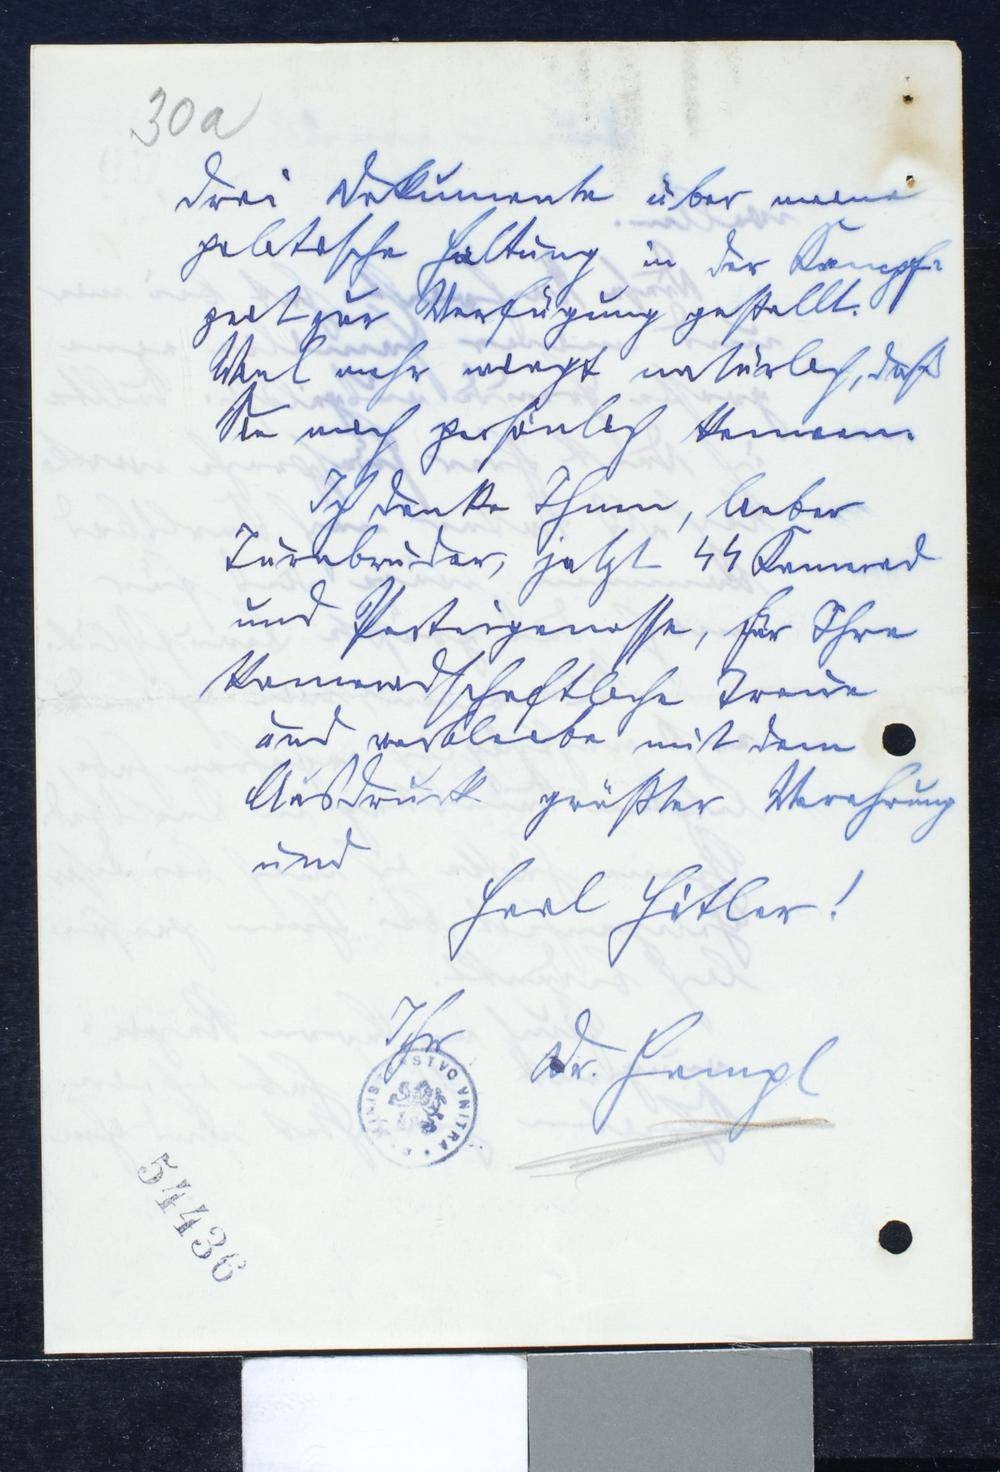 30a
drei Dokumente über meine
politische Haltung in der Kampf-
zeit zur Verfügung gestellt.
Viel mehr wiegt natürlich, daß
Sie mich persönlich kennen.
Ich danke Ihnen, lieber
Turnbruder, jetzt SS Kamerad
und Parteigenosse, für Ihre
kameradschaftliche Treue
und verbleibe mit dem
Ausdruck größter Verehrung
und
Heil Hitler!
Ihr Dr. Hampl
MINISTERSTVO VNITRA
54436